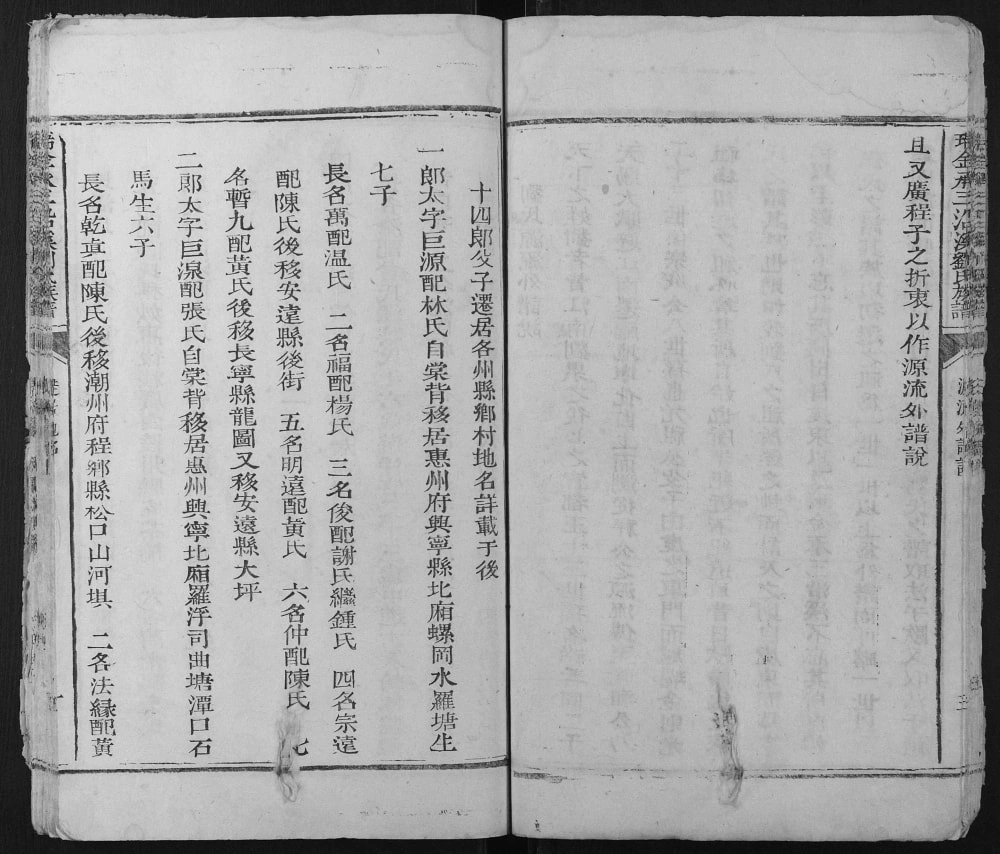 且又廣程子之折衷以作源流外譜說
十四郎父子遷居各州縣鄉村地名詳載于後
一郎太字巨源配林氏自棠背移居惠州府興寧縣北廂螺岡水羅塘生
七子
長名萬配温氏 二名福配楊氏 三名俊配謝氏繼鍾氏 四名宗遠
配陳氏後移安遠縣後街 五名明遠配黃氏 六名仲配陳氏 七
名暫九配黃氏後移長寧縣龍圖又移安遠縣大坪
二郎太字巨湶配張氏自棠背移居惠州興寧北廂羅浮司曲塘潭口石
馬生六子
長名乾真配陳氏後移潮州府程鄉縣松口山河埧 二各法緑配黃